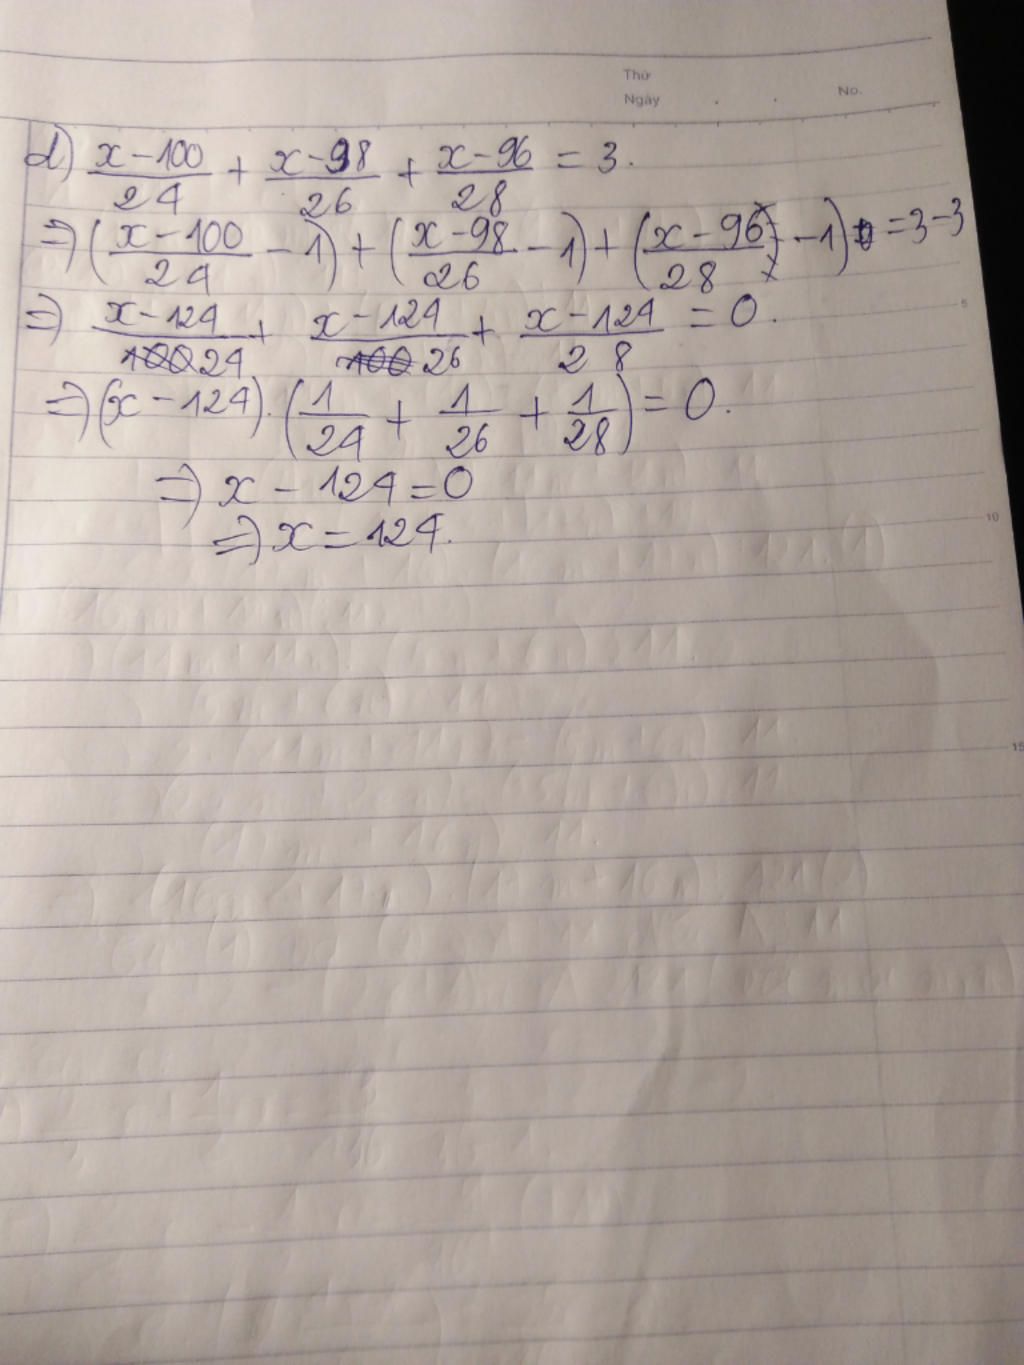 Thứ
Ngày
No.
d) x-100/24 + x-98/26 + x-96/28 = 3.
=> (x-100/24 - 1) + (x-98/26 - 1) + (x-96/28 - 1) = 3-3
=> x-124/24 + x-124/26 + x-124/28 = 0.
=> (x-124).(1/24 + 1/26 + 1/28) = 0.
=> x - 124 = 0
=> x = 124.
5
10
15